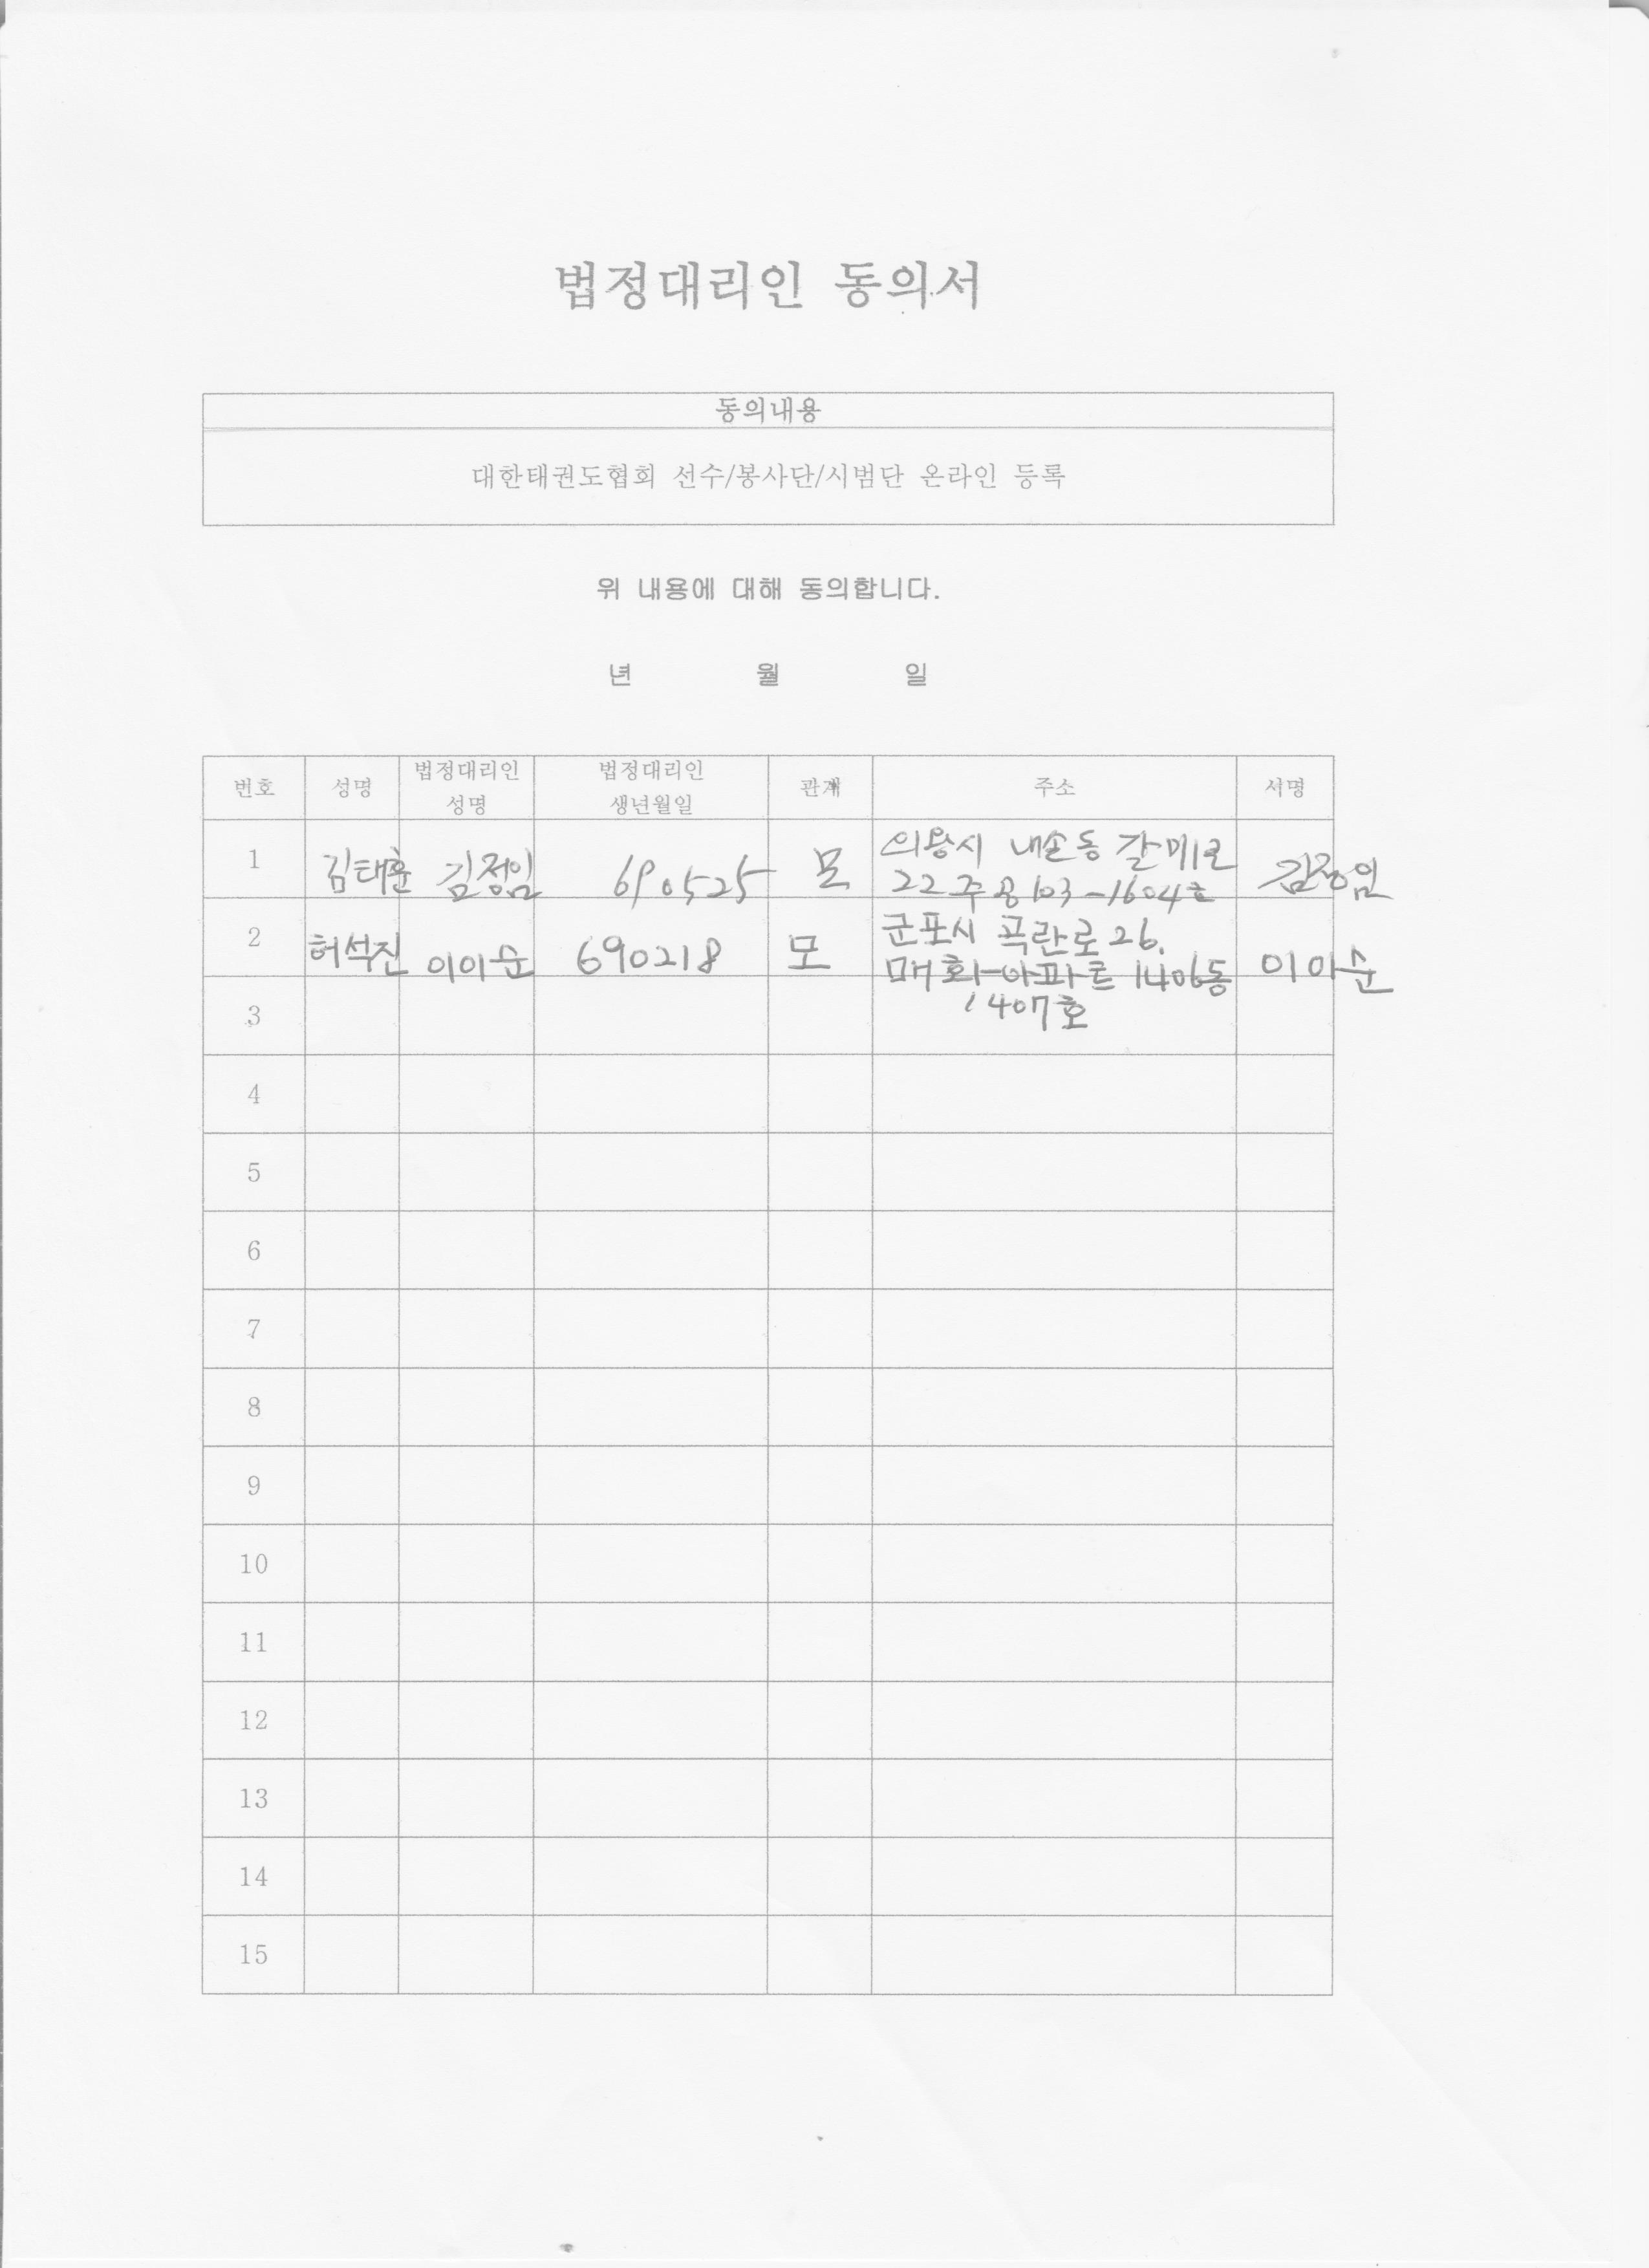 법정대리인 동의서
동의내용
대한태권도협회 선수/봉사단/시범단 온라인 등록
위 내용에 대해 동의합니다.
년 월 일
번호 성명 법정대리인 성명 법정대리인 생년월일 관계 주소 서명
1 김태훈 김정임 690525 모 의왕시 내손동 갈미1로 김정임
22 주공 103-1604호
2 허석진 이이순 690218 모 군포시 곡란로 26. 이이순
매화아파트 1406동
1407호
3
4
5
6
7
8
9
10
11
12
13
14
15